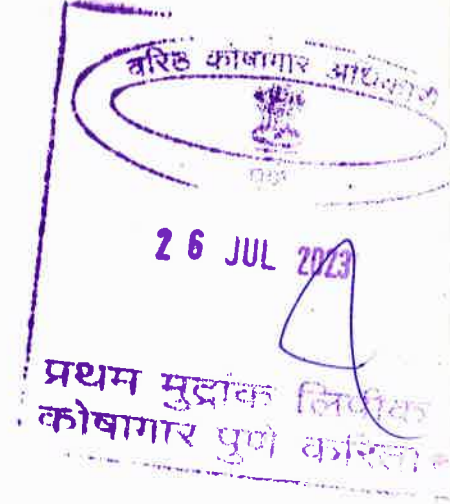 वरिष्ठ कोषागार अधिकारी
पुणे
26 JUL 2023
प्रथम मुद्रांक लिपीक
कोषागार पुणे करिता